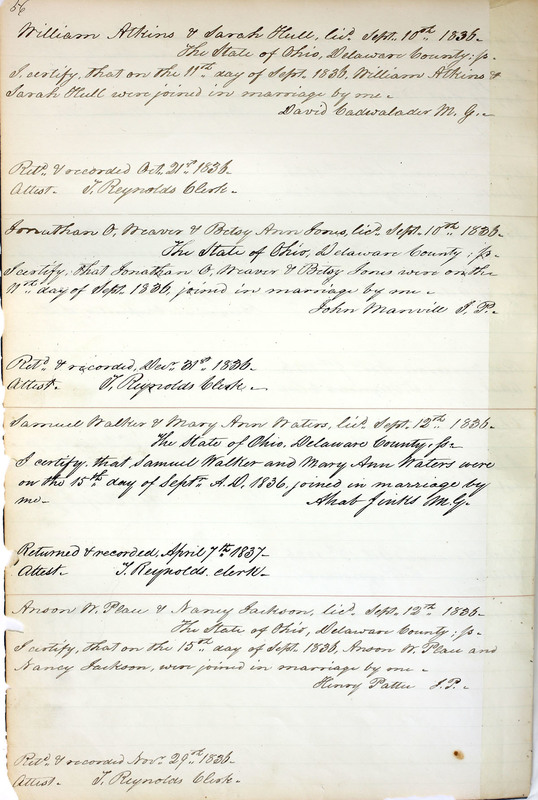 56
William Atkins & Sarah Hull, licd. Sept. 10th 1836.
The State of Ohio, Delaware County: ss.
I, certify, that on the 11th day of Sept. 1836, William Atkins &
Sarah Hull were joined in marriage by me.
David Cadwalader M. G.
Retd. & recorded Oct. 21st 1836.
Attest. T. Reynolds Clerk.
Jonathan O, Weaver & Betsy Ann Jones, licd. Sept. 10th 1836.
The State of Ohio, Delaware County: ss.
I certify, that Jonathan O, Weaver & Betsy Jones were on the
11th day of Sept. 1836, joined in marriage by me.
John Manvill J. P.
Retd. & recorded, Decr. 21st 1836.
Attest. T. Reynolds Clerk.
Samuel Walker & Mary Ann Waters, licd. Sept. 12th 1836.
The State of Ohio, Delaware County, ss.
I certify, that Samuel Walker and Mary Ann Waters were
on the 15th day of Septr. A.D. 1836 joined in marriage by
me. Ahab Jinks M.G.
Returned & recorded, April 7th 1837.
Attest. T. Reynolds. clerk.
Anson W. Place & Nancy Jackson, licd. Sept. 12th 1836.
The State of Ohio, Delaware County: ss.
I certify, that on the 15th day of Sept. 1836, Anson W. Place and
Nancy Jackson, were joined in marriage by me.
Henry Pattee J.P.
Retd. & recorded Novr. 29th 1836.
Attest. T. Reynolds Clerk.